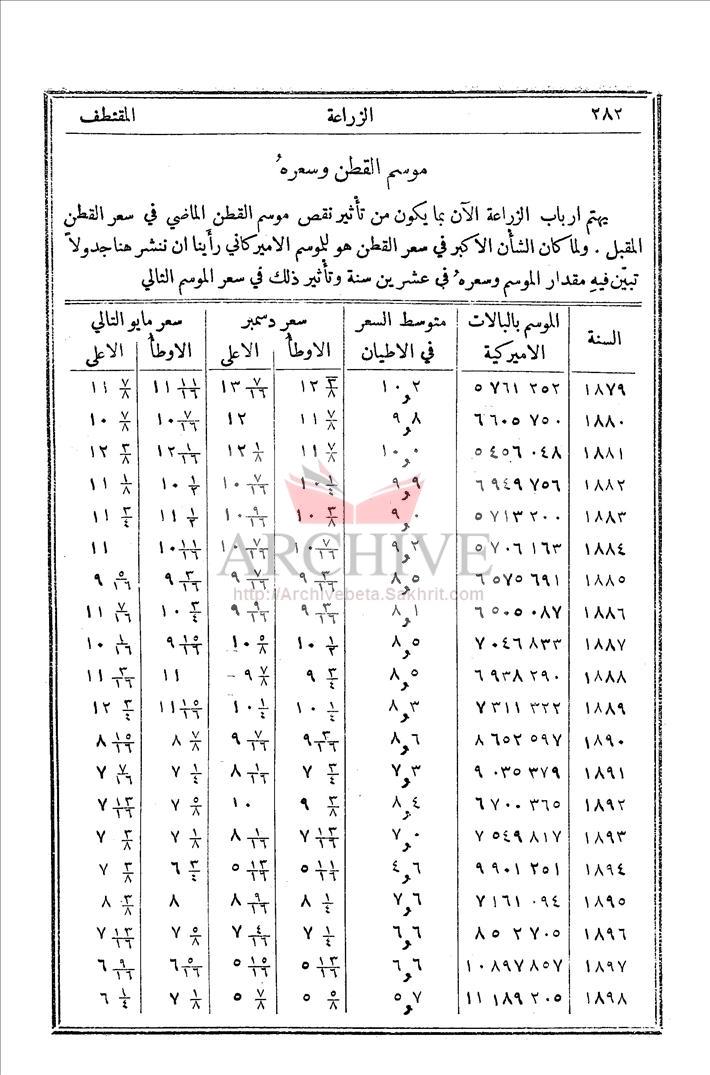 ٢٨٢ الزراعة المقتطف
موسم القطن وسعرهُ
يهتم ارباب الزراعة الآن بما يكون من تأثير نقص موسم القطن الماضي في سعر القطن
المقبل . ولما كان الشأن الاكبر في سعر القطن هو للموسم الاميركاني رأينا ان ننشر هنا جدولاً
تبيّن فيهِ مقدار الموسم وسعرهُ في عشرين سنة وتأثير ذلك في سعر الموسم التالي
السنة الموسم بالبالات متوسط السعر سعر دسمبر سعر مايو التالي
الاميركية في الاطيان الاوطأ الاعلى الاوطأ الاعلى
١٨٧٩ ٥ ٧٦١ ٢٥٢ ١٠٫٢ ١٢ ٣/٨ ١٣ ٧/١٦ ١١ ١١/١٦ ١١ ٧/٨
١٨٨٠ ٦ ٦٠٥ ٧٥٠ ٩٫٨ ١١ ٧/٨ ١٢ ١٠ ٧/١٦ ١٠ ٧/٨
١٨٨١ ٥ ٤٥٦ ٠٤٨ ١٠٫٠ ١١ ٧/٨ ١٢ ١/٨ ١٢ ١/١٦ ١٢ ٣/٨
١٨٨٢ ٦ ٩٤٩ ٧٥٦ ٩٫٩ ١٠ ١/٤ ١٠ ٧/١٦ ١٠ ١/٢ ١١ ١/٨
١٨٨٣ ٥ ٧١٣ ٢٠٠ ٩٫٠ ١٠ ٣/٨ ١٠ ٩/١٦ ١١ ١/٢ ١١ ٣/٤
١٨٨٤ ٥ ٧٠٦ ١٦٣ ٩٫٢ ١٠ ٧/١٦ ١٠ ٧/١٦ ١٠ ١١/١٦ ١١
١٨٨٥ ٦ ٥٧٥ ٦٩١ ٨٫٥ ٩ ٣/١٦ ٩ ٧/١٦ ٩ ٣/١٦ ٩ ٥/١٦
١٨٨٦ ٦ ٥٠٥ ٠٨٧ ٨٫١ ٩ ٣/١٦ ٩ ٩/١٦ ١٠ ٣/٤ ١١ ٧/١٦
١٨٨٧ ٧ ٠٤٦ ٨٣٣ ٨٫٥ ١٠ ١/٢ ١٠ ٥/٨ ٩ ١٥/١٦ ١٠ ١/١٦
١٨٨٨ ٦ ٩٣٨ ٢٩٠ ٨٫٥ ٩ ٣/٤ ٩ ٧/٨ ١١ ١١ ٣/١٦
١٨٨٩ ٧ ٣١١ ٣٢٢ ٨٫٣ ١٠ ١/٤ ١٠ ١/٤ ١١ ١٥/١٦ ١٢ ٣/٤
١٨٩٠ ٨ ٦٥٢ ٥٩٧ ٨٫٦ ٩ ٣/١٦ ٩ ٧/١٦ ٨ ٧/٨ ٨ ١٥/١٦
١٨٩١ ٩ ٠٣٥ ٣٧٩ ٧٫٣ ٧ ٣/٤ ٨ ١/١٦ ٧ ١/٤ ٧ ٧/١٦
١٨٩٢ ٦ ٧٠٠ ٣٦٥ ٨٫٤ ٩ ٣/٨ ١٠ ٧ ٥/٨ ٧ ١٣/١٦
١٨٩٣ ٧ ٥٤٩ ٨١٧ ٧٫٠ ٧ ١٣/١٦ ٨ ١/١٦ ٧ ١/٨ ٧ ٣/٨
١٨٩٤ ٩ ٩٠١ ٢٥١ ٦٫٤ ٥ ١١/١٦ ٥ ١٣/١٦ ٦ ٣/٤ ٧ ٣/٨
١٨٩٥ ٧ ١٦١ ٠٩٤ ٧٫٦ ٨ ١/٤ ٨ ٩/١٦ ٨ ٨ ٣/٨
١٨٩٦ ٨ ٥٠٢ ٧٠٥ ٦٫٦ ٧ ١/٤ ٧ ٤/١٦ ٧ ٥/٨ ٧ ١٣/١٦
١٨٩٧ ١٠ ٨٩٧ ٨٥٧ ٦٫٦ ٥ ١٣/١٦ ٥ ١٥/١٦ ٦ ٥/١٦ ٦ ٩/١٦
١٨٩٨ ١١ ١٨٩ ٢٠٥ ٥٫٧ ٥ ٥/٨ ٥ ٧/٨ ٧ ١/٨ ٦ ١/٤
ARCHIVE
http://Archivebeta.Sakhrit.com